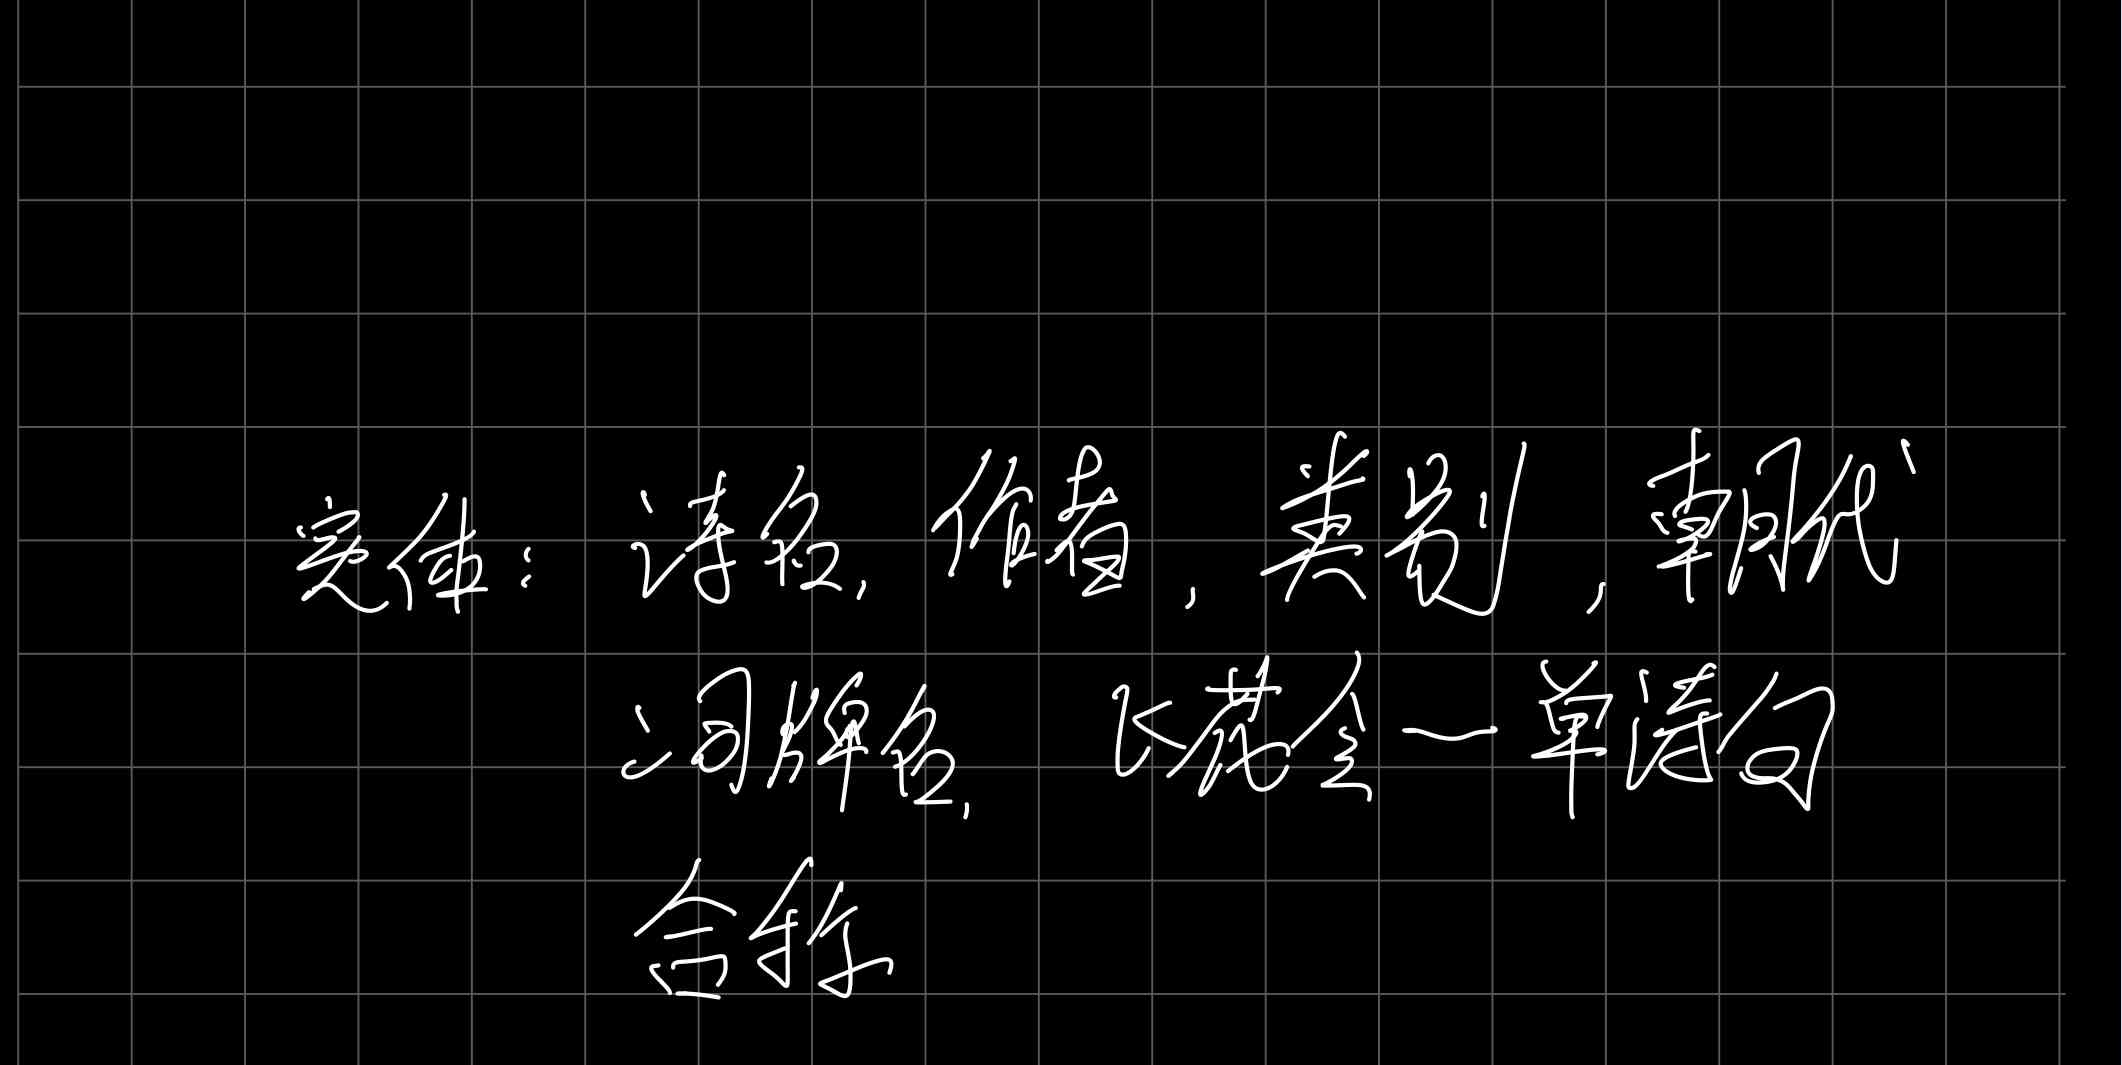 实体：诗名，作者，类别，朝代
词牌名，飞花令一单诗句
合称